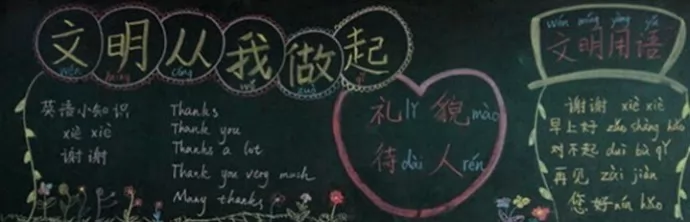 文明从我做起
wén míng cóng wǒ zuò qǐ
英语小知识
xiè xiè
谢谢
Thanks
Thank you
Thanks a lot
Thank you very much
Many thanks
礼lǐ 貌mào
待dài 人rén
wén míng yòng yǔ
文明用语
谢谢 xiè xiè
早上好 zǎo shàng hǎo
对不起 duì bù qǐ
再见 zài jiàn
您好nín hǎo